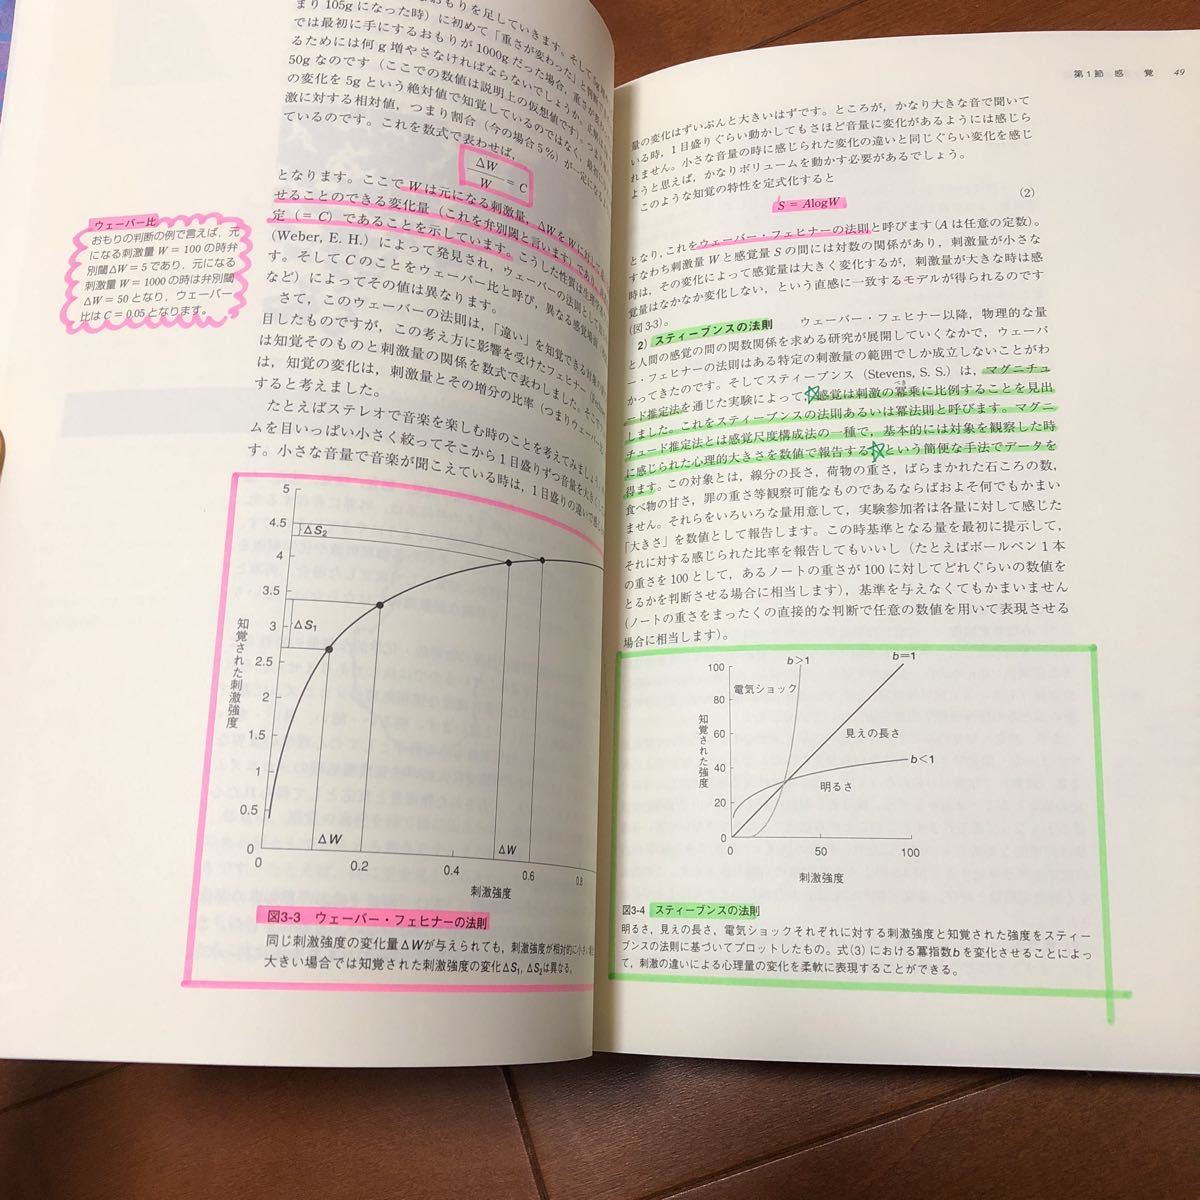 おもりを足していきます。そして
まり105gになった時）に初めて「重さが変わった」と
では最初に手にするおもりが1000gだった場合，重さが
るためには何g増やさなければならないでしょうか。
50gなのです（ここでの数値は説明上の仮想値です）。つまり
の変化を5gという絶対値で知覚しているのではなく，
激に対する相対値，つまり割合（今の場合5％）が一定になる
ているのです。これを数式で表わせば，
ΔW
W
= C
となります。ここでWは元になる刺激量，ΔWをWに対して
せることのできる変化量（これを弁別閾と言います）であり，
定（＝C）であることを示しています。こうした性質は生理学者
(Weber, E. H.) によって発見され，ウェーバーの法則として
す。そしてCのことをウェーバー比と呼び，異なる感覚
など）によってその値は異なります。
さて，このウェーバーの法則は，「違い」を知覚できる
目したものですが，この考え方に影響を受けたフェヒナー
は知覚そのものと刺激量の関係を数式で表わしました。
は，知覚の変化は，刺激量とその増分の比率（つまりウェーバー
すると考えました。
たとえばステレオで音楽を楽しむ時のことを考えてみましょう。
ムを目いっぱい小さく絞ってそこから1目盛りずつ音量を大きく
す。小さな音量で音楽が聞こえている時は，1目盛りの違いで
ウェーバー比
おもりの判断の例で言えば，元
になる刺激量 W = 100 の時弁
別閾ΔW = 5であり，元になる
刺激量 W = 1000 の時は弁別閾
ΔW = 50となり，ウェーバー
比はC = 0.05となります。
5
4.5
4
3.5
3
2.5
2
1.5
1
0.5
0
ΔS₂
ΔS₁
知覚された刺激強度
ΔW
ΔW
0
0.2
0.4
0.6
0.8
刺激強度
図3-3 ウェーバー・フェヒナーの法則
同じ刺激強度の変化量ΔWが与えられても，刺激強度が相対的に小さい
大きい場合では知覚された刺激強度の変化ΔS₁, ΔS₂は異なる。
第1節 感 覚 49
量の変化はずいぶんと大きいはずです。ところが，かなり大きな音で聞いて
いる時，1目盛りぐらい動かしてもさほど音量に変化があるようには感じら
れません。小さな音量の時に感じられた変化の違いと同じぐらい変化を感じ
ようと思えば，かなりボリュームを動かす必要があるでしょう。
このような知覚の特性を定式化すると
S = AlogW (2)
となり，これをウェーバー・フェヒナーの法則と呼びます（Aは任意の定数）。
すなわち刺激量Wと感覚量Sの間には対数の関係があり，刺激量が小さな
時は，その変化によって感覚量は大きく変化するが，刺激量が大きな時は感
覚量はなかなか変化しない，という直感に一致するモデルが得られるのです
（図3-3）。
2）スティーブンスの法則 ウェーバー・フェヒナー以降，物理的な量
と人間の感覚の間の関数関係を求める研究が展開していくなかで，ウェーバ
ー・フェヒナーの法則はある特定の刺激量の範囲でしか成立しないことがわ
かってきたのです。そしてスティーブンス（Stevens, S. S.）は，マグニチュ
ード推定法を通じた実験によって，感覚は刺激の冪乗に比例することを見出
べき
しました。これをスティーブンスの法則あるいは冪法則と呼びます。マグニ
チュード推定法とは感覚尺度構成法の一種で，基本的には対象を観察した時
に感じられた心理的大きさを数値で報告するという簡便な手法でデータを
得ます。この対象とは，線分の長さ，荷物の重さ，ばらまかれた石ころの数，
食べ物の甘さ，罪の重さ等観察可能なものであるならばおよそ何でもかまい
ません。それらをいろいろな量用意して，実験参加者は各量に対して感じた
「大きさ」を数値として報告します。この時基準となる量を最初に提示して，
それに対する感じられた比率を報告してもいいし（たとえばボールペン1本
の重さを100として，あるノートの重さが100に対してどれぐらいの数値を
とるかを判断させる場合に相当します），基準を与えなくてもかまいません
（ノートの重さをまったくの直接的な判断で任意の数値を用いて表現させる
場合に相当します）。
100
80
60
40
20
0
知覚された強度
b>1
b=1
電気ショック
見えの長さ
b<1
明るさ
0
50
100
刺激強度
図3-4 スティーブンスの法則
明るさ，見えの長さ，電気ショックそれぞれに対する刺激強度と知覚された強度をスティー
ブンスの法則に基づいてプロットしたもの。式（3）における冪指数bを変化させることによっ
て，刺激の違いによる心理量の変化を柔軟に表現することができる。